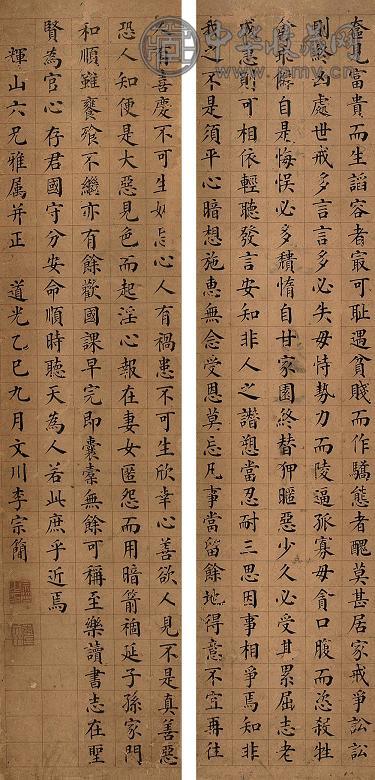 中华收藏网
奩見富貴而生諂容者寂可恥遇貧賤而作驕態者醜莫甚居家戒爭訟訟
則終凶處世戒多言言多必失毋恃勢力而陵逼孤寡毋貪口腹而恣殺牲
禽乖僻自是悔悞必多穨惰自甘家園終替狎暱惡少久必受其累屈志老
成急則可相依輕聽發言安知非人之譖愬當忍耐三思因事相爭焉知非
我之不是須平心暗想施惠無念受恩莫忘凡事當留餘地得意不宜再往
人有喜慶不可生妒忌心人有禍患不可生欣幸心善欲人見不是真善惡
恐人知便是大惡見色而起淫心報在妻女匿怨而用暗箭禍延子孫家門
和順雖饔飧不繼亦有餘歡國課早完即囊橐無餘可稱至樂讀書志在聖
賢為官心存君國守分安命順時聽天為人若此庶乎近焉
輝山六兄雅属并正 道光乙巳九月文川李宗簡